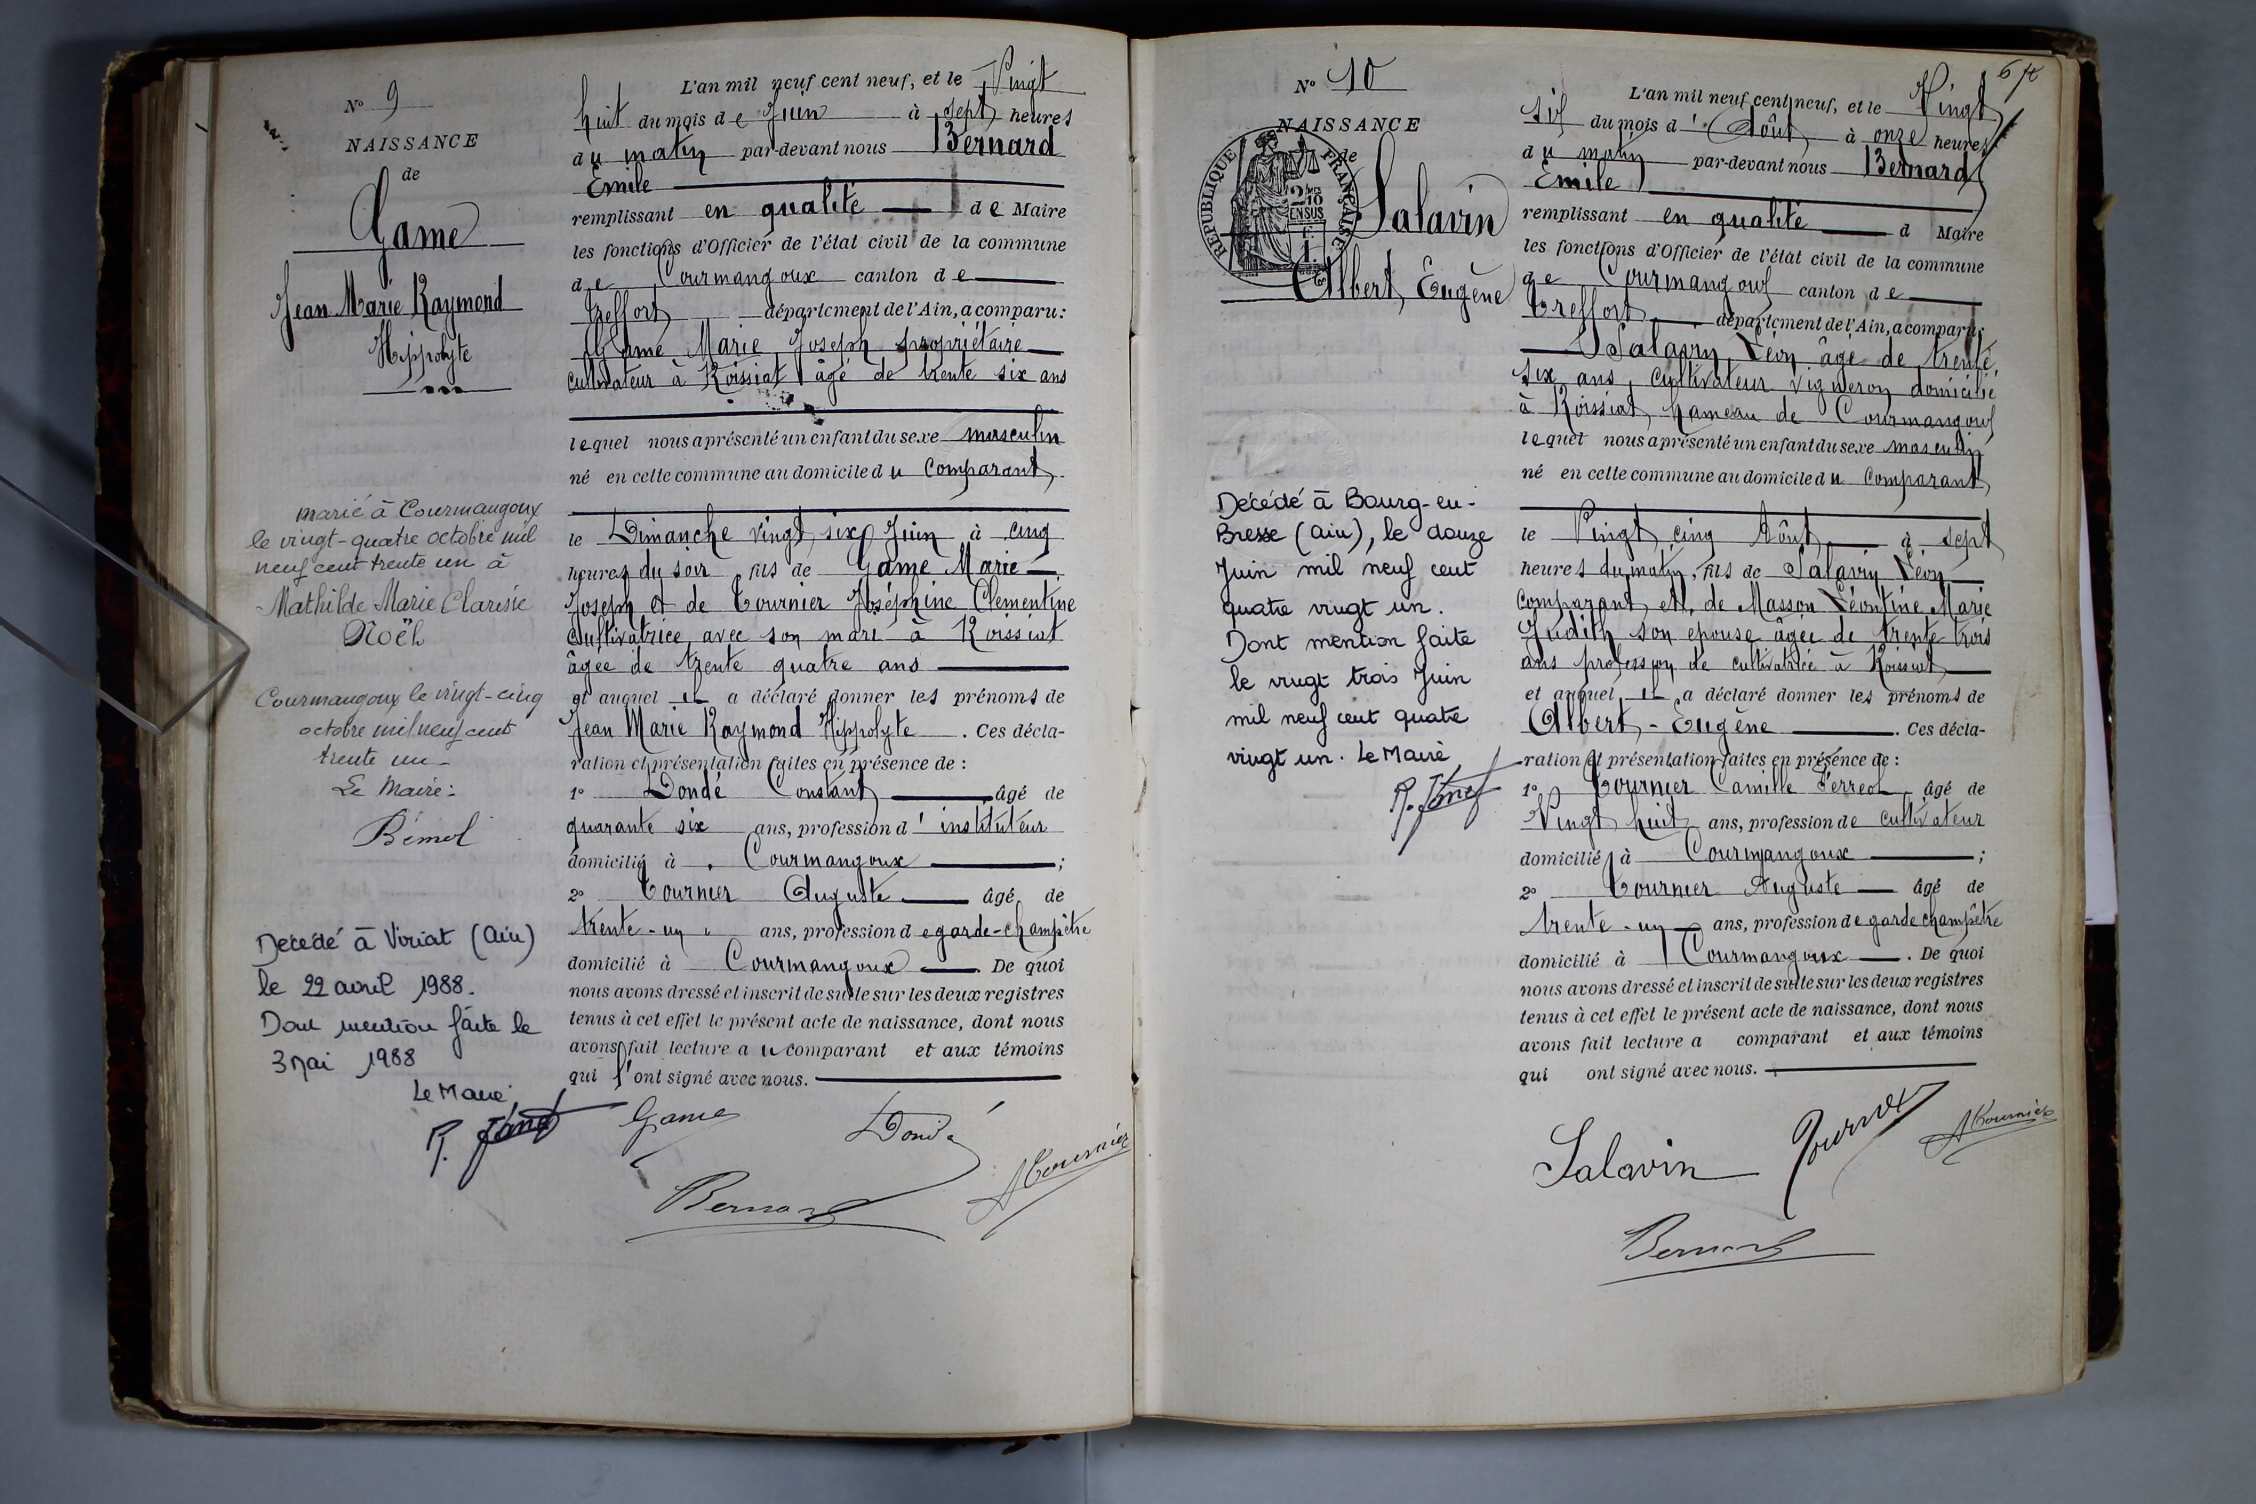 N° 9
NAISSANCE
de
Game
Jean Marie Raymond
Hippolyte
marié à Courmangoux
le vingt-quatre octobre mil
neuf cent trente un à
Mathilde Marie Clarisse
Noël
Courmangoux le vingt-cinq
octobre mil neuf cent
trente un
Le Maire:
Décédé à Viriat (Ain)
le 22 avril 1988.
Dont mention faite le
3 Mai 1988
Le Maire,
L'an mil neuf cent neuf, et le Vingt
huit du mois de Juin à sept heures
du matin par-devant nous Bernard
Emile
remplissant en qualité de Maire
les fonctions d'Officier de l'état civil de la commune
de Courmangoux canton de
Treffort département de l'Ain, a comparu:
Game Marie Joseph propriétaire
cultivateur à Roissiat âgé de trente six ans
lequel nous a présenté un enfant du sexe masculin
né en cette commune au domicile du Comparant
le Dimanche vingt six Juin à cinq
heures du soir, fils de Game Marie
Joseph et de Tournier Joséphine Clementine
cultivatrice avec son mari à Roissiat
âgée de trente quatre ans
et auquel il a déclaré donner les prénoms de
Jean Marie Raymond Hippolyte. Ces décla-
ration et présentation faites en présence de:
1° Dondé Constant âgé de
quarante six ans, profession d'instituteur
domicilié à Courmangoux;
2° Tournier Auguste âgé de
trente-un ans, profession de garde-champêtre
domicilié à Courmangoux. De quoi
nous avons dressé et inscrit de suite sur les deux registres
tenus à cet effet le présent acte de naissance, dont nous
avons fait lecture au comparant et aux témoins
qui l'ont signé avec nous.
Game Dondé
Bernard ATournier
6
N° 10
NAISSANCE
de
RÉPUBLIQUE FRANÇAISE
2/10
EN SUS
Salavin
Albert Eugène
Décédé à Bourg-en-
Bresse (Ain), le douze
Juin mil neuf cent
quatre vingt un.
Dont mention faite
le vingt trois Juin
mil neuf cent quatre
vingt un. Le Maire
L'an mil neuf cent neuf, et le Vingt
six du mois d'Août à onze heures
du matin par-devant nous Bernard
Emile
remplissant en qualité d Maire
les fonctions d'Officier de l'état civil de la commune
de Courmangoux canton de
Treffort département de l'Ain, a comparu:
Salavin Léon âgé de trente
six ans, cultivateur vigneron domicilié
à Roissiat hameau de Courmangoux
lequel nous a présenté un enfant du sexe masculin
né en cette commune au domicile du Comparant
le Vingt cinq Août à sept
heures du matin, fils de Salavin Léon
comparant et de Masson Léontine Marie
Judith son épouse âgée de trente trois
ans profession de cultivatrice à Roissiat
et auquel il a déclaré donner les prénoms de
Albert-Eugène. Ces décla-
ration et présentation faites en présence de:
1° Tournier Camille Ferreol âgé de
Vingt huit ans, profession de cultivateur
domicilié à Courmangoux;
2° Tournier Auguste âgé de
trente-un ans, profession de garde champêtre
domicilié à Courmangoux. De quoi
nous avons dressé et inscrit de suite sur les deux registres
tenus à cet effet le présent acte de naissance, dont nous
avons fait lecture a comparant et aux témoins
qui ont signé avec nous.
Salavin ATournier
Bernard